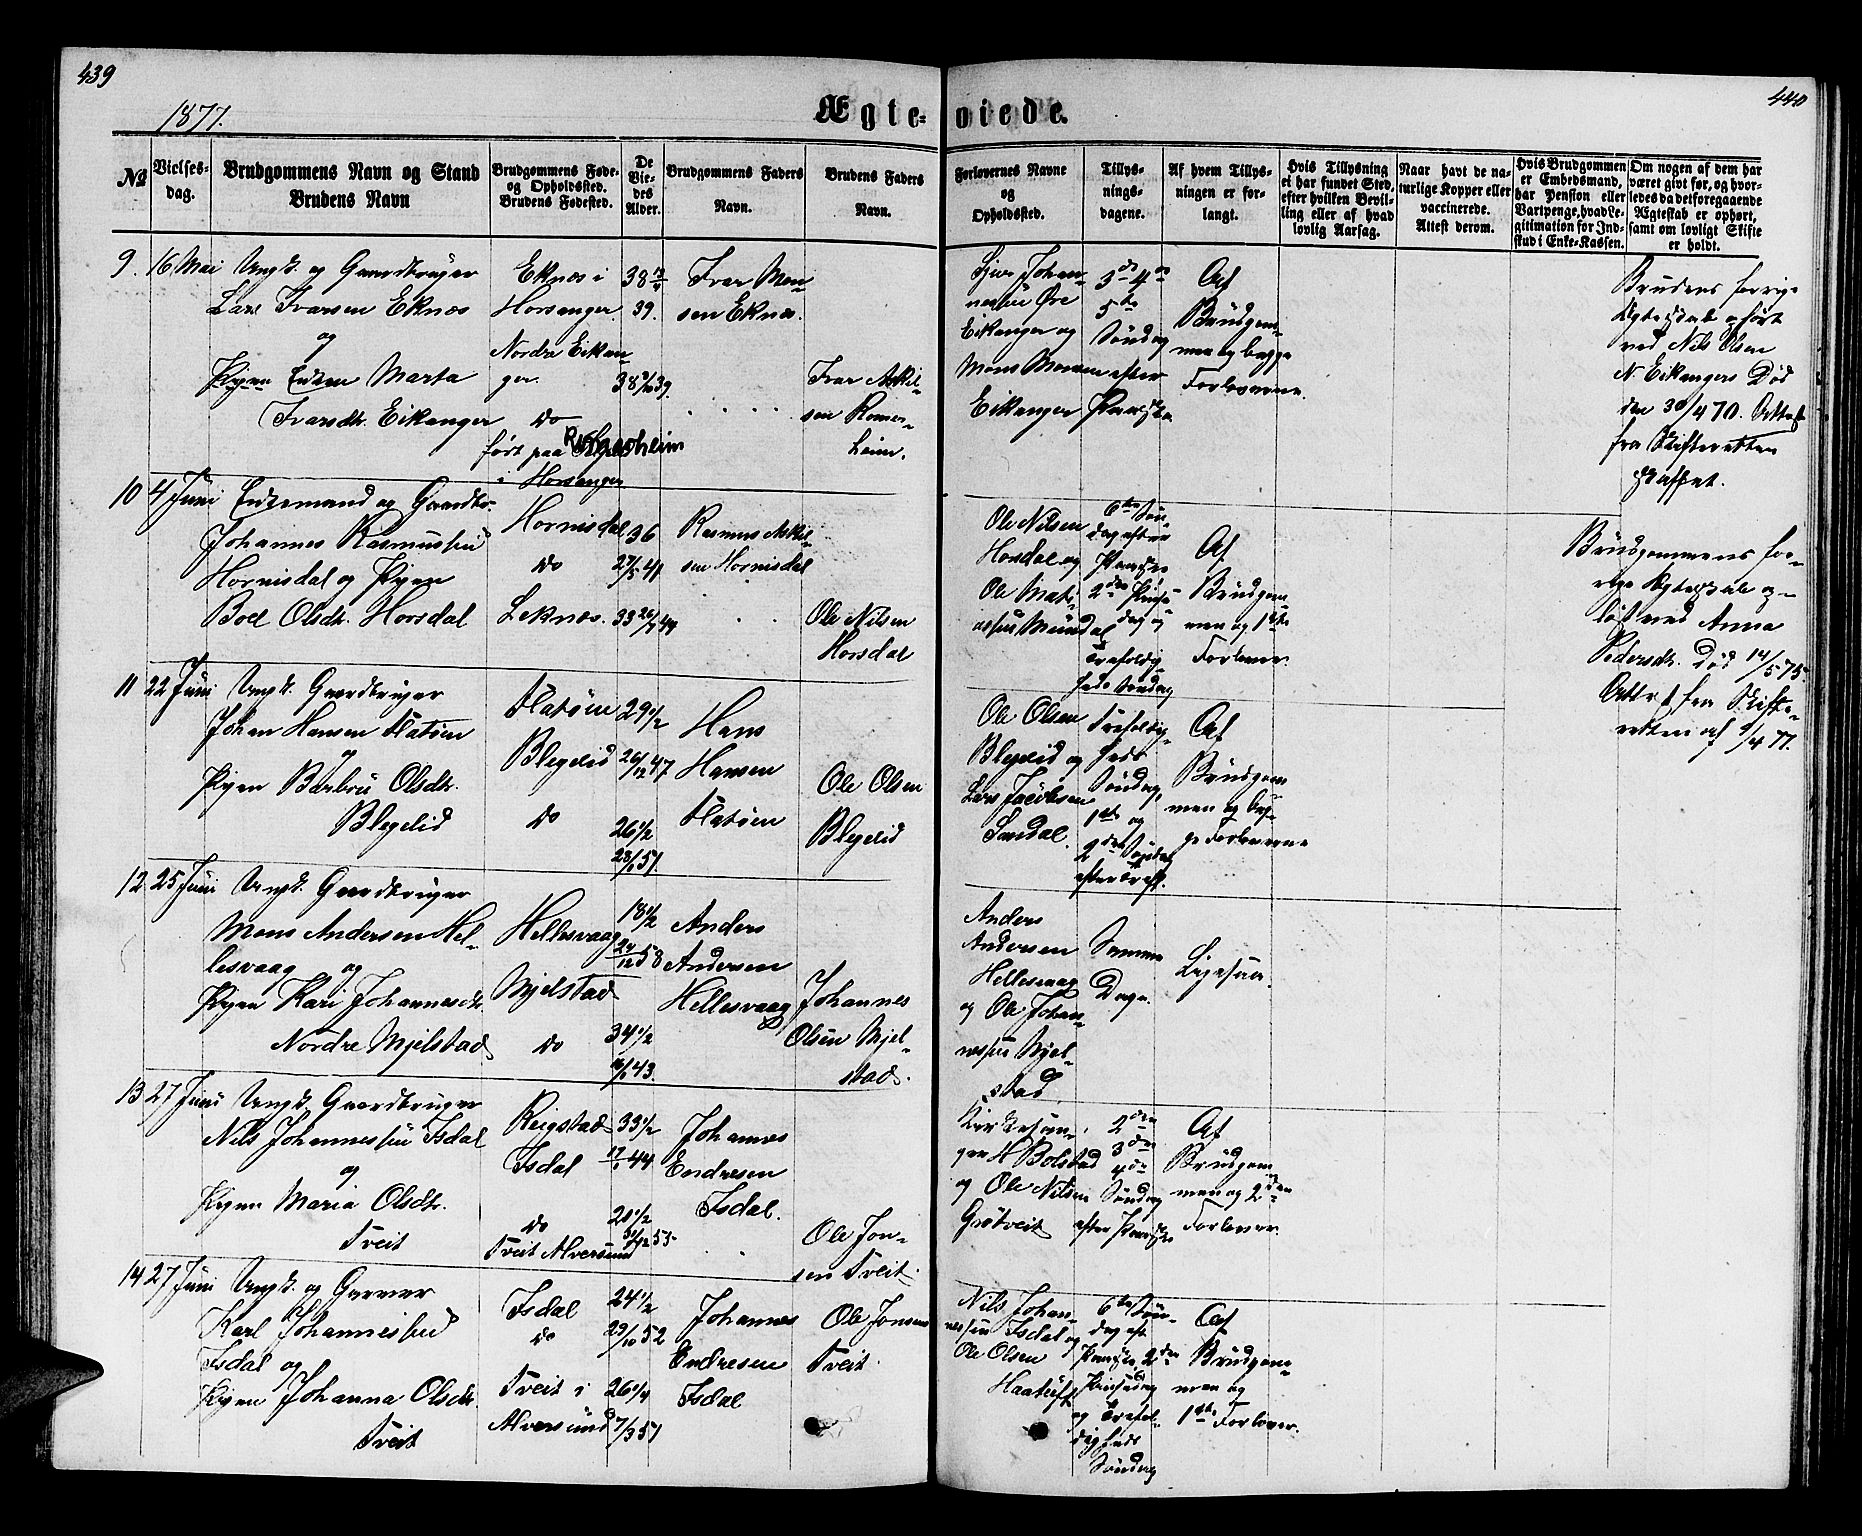 439
440
1877.
Ægte-viede.
No
Vielses-
dag.
Brudgommens Navn og Stand
Brudens Navn
Brudgommens Føde-
og Opholdssted.
Brudens Fødested.
De
Vie-
des
Alder.
Brudgommens Faders
Navn.
Brudens Faders
Navn.
Forlovernes Navne
og
Opholdssted.
Tillys-
nings-
dagene.
Af hvem Tillys-
ningen er for-
langt.
Hvis Tillysning
ei har fundet Sted,
efter hvilken Bevil-
ling eller af hvad
lovlig Aarsag.
Naar havt de na-
turlige Kopper eller
vaccinerede.
Attest derom.
Hvis Brudgommen
er Embedsmand,
har Pension eller
Vartpenge, hvad Le-
gitimation for Ind-
skud i Enke-Kassen.
Om nogen af dem har
været givt før, og hvor-
ledes da det foregaaende
Ægteskab er ophørt,
samt om lovligt Skifte
er holdt.
9. 16 Mai Ungk. og Gaardbruger
Lars Ivarsen Eknæs
og
Pigen Enken Marta
Ivarsdtr. Eikanger
Eknæs i
Hosanger.
Nordre Eikan
ger.
do
født paa Romarheim
i Hosanger
39.
Ivar Mon-
sen Eknæs.
Ivar Askil-
sen Romer-
heim.
Sjur Johan-
nessen Øre
Eikanger og
Mons Monsen
Eikanger
3de 4de
5te
Søndag
efter
Paaske
Af
Brudgom-
men og begge
Forloverne.
Brudens forrige
Ægteskab opløst
ved Nils Olsen
N. Eikangers Død
den 30/4 70. Attest
fra Skifteretten
skaffet.
10 4 Juni Enkemand og Gaardbr.
Johannes Rasmussen
Hornisdal og Pigen
Boel Olsdtr. Hosdal
Hornisdal
do
Leknæs.
36
27/5 41
33 26/7 44
Rasmus Askil-
sen Hornisdal
Ole Nilsen
Hosdal
Ole Nilsen
Hosdal og
Ole Mati-
assen Mundal
6te Søn-
dag efter
Paaske
2den Pinse
dag og
Trefoldig-
heds Søndag
Af
Brudgom-
men og 1ste
Forlover.
Brudgommens for-
rige Ægteskab op-
løst ved Anna
Pedersdtr. Død 14/5 75.
Attest fra Skifte-
retten af 9/4 77.
11 22 Juni Ungk. Gaardbruger
Johan Hansen Flatøen
og
Pigen Barbru Olsdtr.
Blegelid
Flatøen
Blegelid
do
29 1/2
26/12 47
26 1/2
Hans
Hansen
Flatøen
Ole Olsen
Blegelid
Ole Olsen
Blegelid og
Lars Jacobsen
Trefoldig-
heds
Søndag,
1ste og
2den Søndag
efter Tref.
Af
Brudgom
men og beg-
ge Forloverne
12 25 Juni Ungk. Gaardbruger
Mons Andersen Hel-
lesvaag og
Pigen Kari Johannesdtr.
Nordre Mjelstad
Hellesvaag
Mjelstad
do
18 1/2
24/12 58
34 1/2
Anders
Andersen
Hellesvaag
Johannes
Olsen Mjel-
stad.
Anders
Andersen
Hellesvaag
og Ole Johan-
nessen Mjel-
stad
Samme
Dage.
Ligesaa.
13 27 Juni Ungk. Gaardbruger
Nils Johannessen Isdal
og
Pigen Maria Olsdtr.
Tveit
Reigstad
Isdal
do
Tveit Alversund
33 1/2
Johannes
Endresen
Isdal.
Ole Jon-
sen Tveit.
Kirkesan-
ger H Bolstad
og Ole Nilsen
Grøtveit
2den
3die
4de
Søndag
efter Paaske
Af
Brudgom
men og 2den
Forlover.
14 27 Juni Ungk. og Garver
Karl Johannessen
Isdal og
Pigen Johanna Olsdtr.
Tveit
Isdal
do
Tveit i
Alversund
24 1/2
29/10 52
26 1/4
7/3 51
Johannes
Endresen
Isdal
Ole Jonsen
Tveit.
Nils Johan-
nessen Isdal og
Ole Olsen
Haatuft
6te Søn-
dag eft
Paaske, 2den
Pinsedag
og Trefol-
digheds
Søndag
Af
Brudgom-
men og
1ste Forlover.